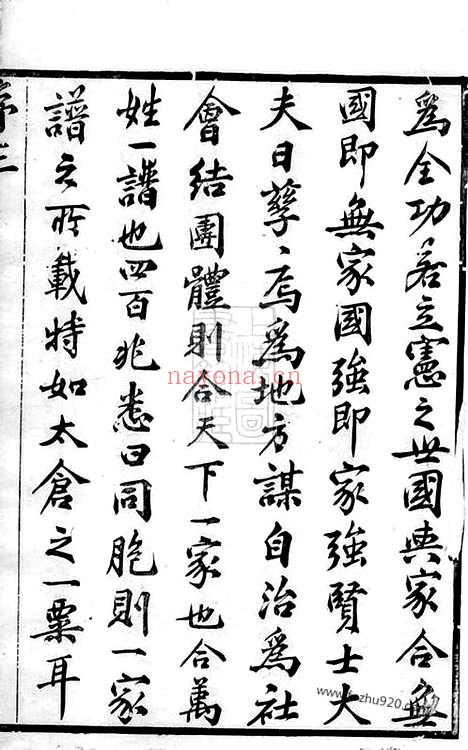 爲全功若立憲之世國與家合無
國即無家國強即家強賢士大
夫日孳〻焉爲地方謀自治爲社
會結團體則合天下一家也合萬
姓一譜也四百兆悉曰同胞則一家
譜之所載特如太倉之一粟耳
序三
nayona.cn